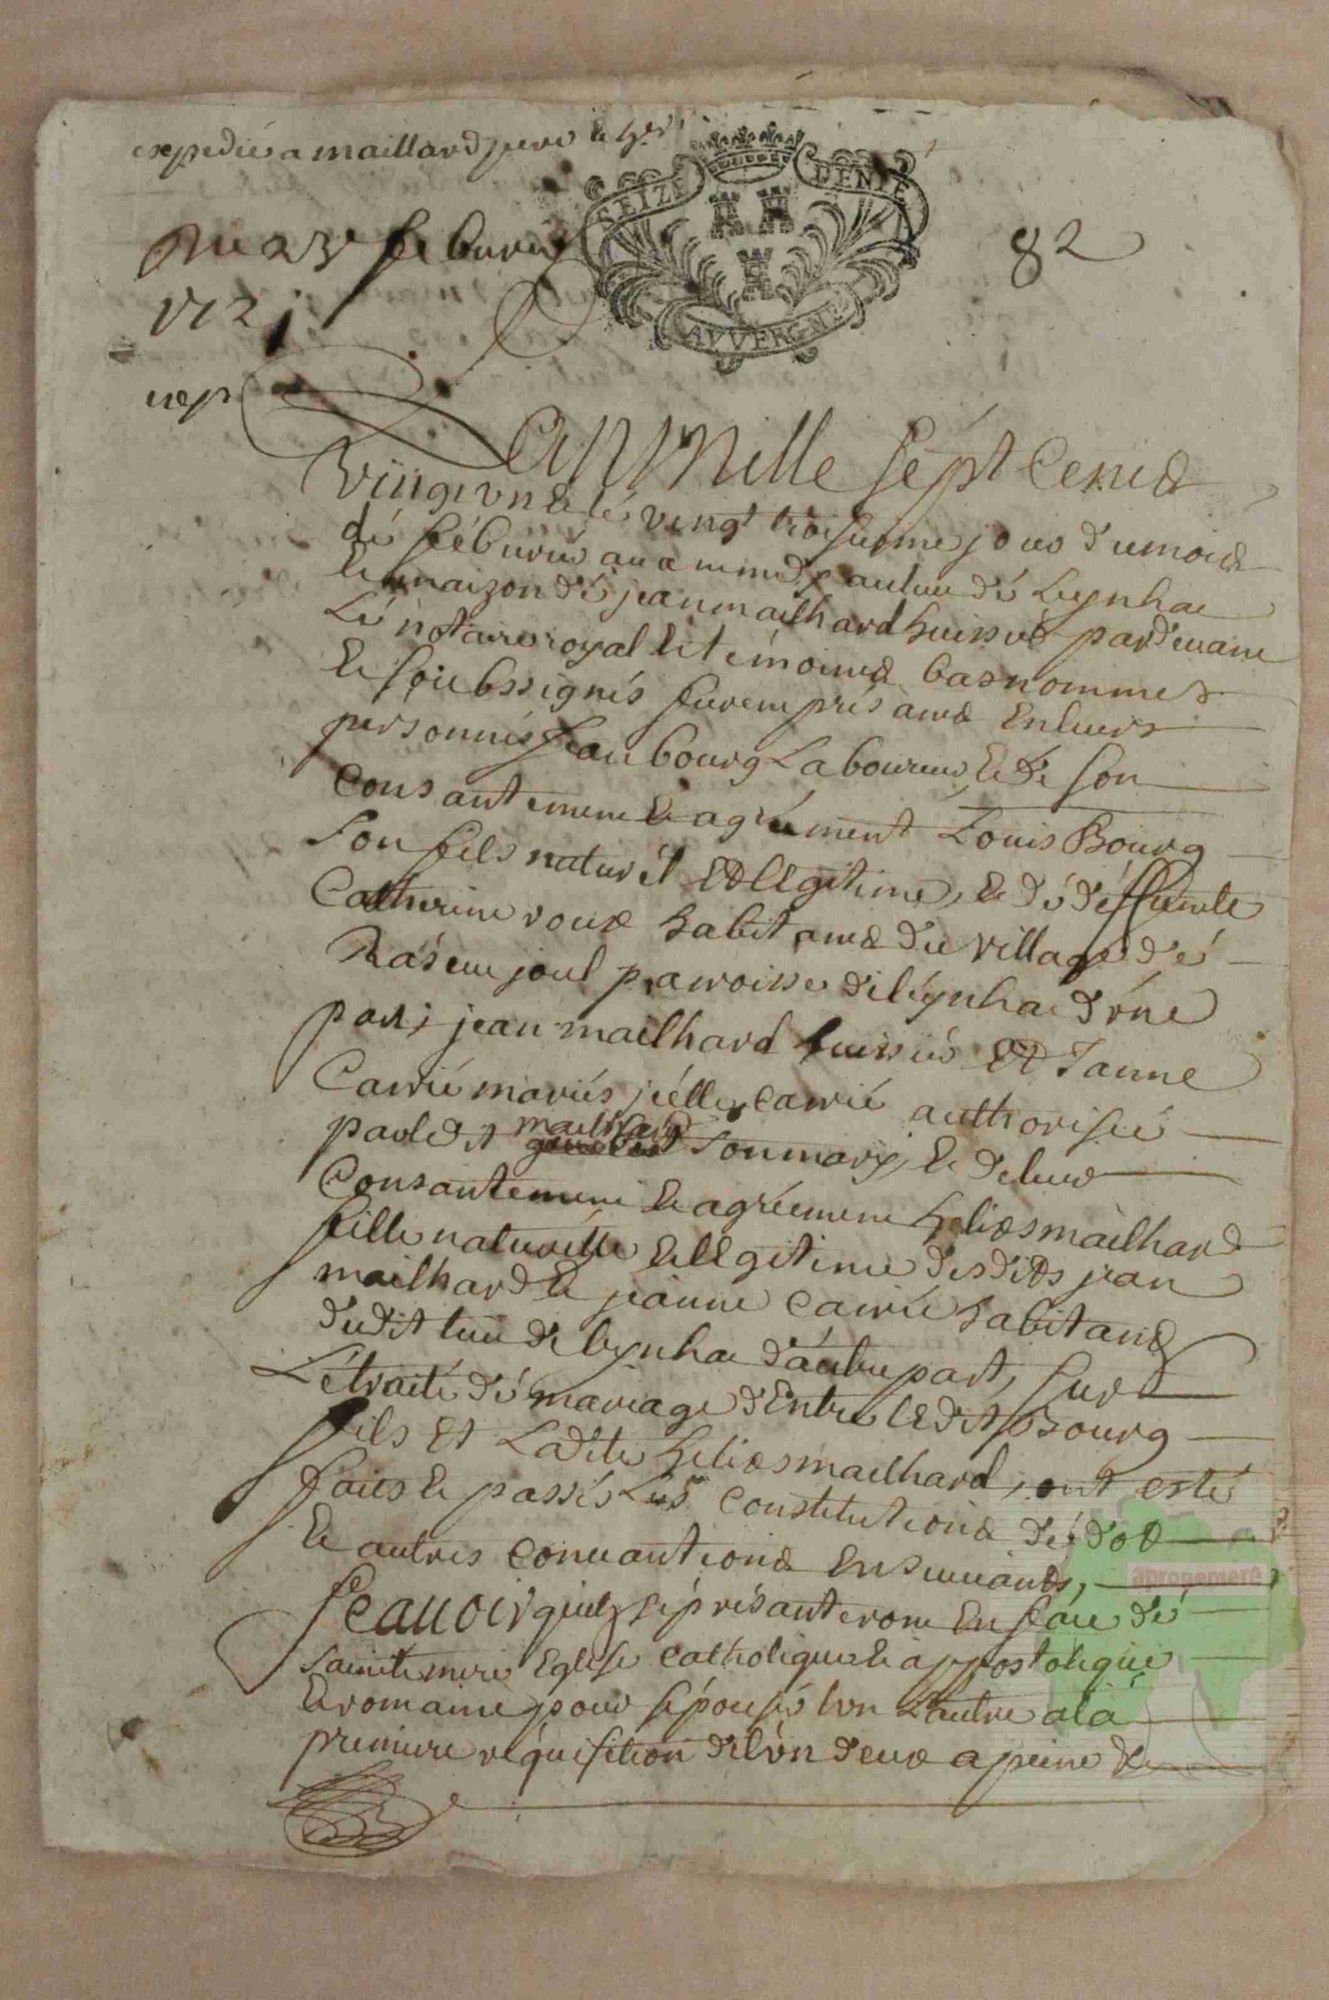 expedié a maillard pere le
SEIZE DENIE
AVVERGNE
Du 23e feburié
82
1721
exp
L'an mille sept cents
vingt un & le vingt troisiesme jour du mois
dé féburié au lieu dé Leynhac
& maizon dé jean mailhard huissié pardevant
Lé notaire royal & témoins bas nommes
& soubssignés furent présants En leurs
personnes Jean bourg Laboureur, & de son
Consantement & agréement Louis Bourg
son fils naturél Et légitime, & dé déffunte
Catherine roux habitants du village dé
parroisse dé léynhac d'une
part; jean mailhard huissié Et Janne
Carrié mariés, jcélle Carrié authorisée
par ledit mailhard son mary, & de leur
Consantement & agréement helixs mailhard
fille naturélle & légitime désdits jean
mailhard & jeanne Carrié habitants
dudit lieu de leynhac d'autre part, sur
Lé traité dé mariage d'Entre lédit Bourg
fils Et Ladite helixs mailhard, ont esté
faits & passés Les Constitutions dé dot
& autres Convantions Ensuivants,
Scauoir quilz sé présanteront En face dé
sainte mere Eglise Catholique & appostolique
& romaine pour s'épousér l'un L'autre a la
premiere réquisition dé l'un d'eux a peine de
aprogemere